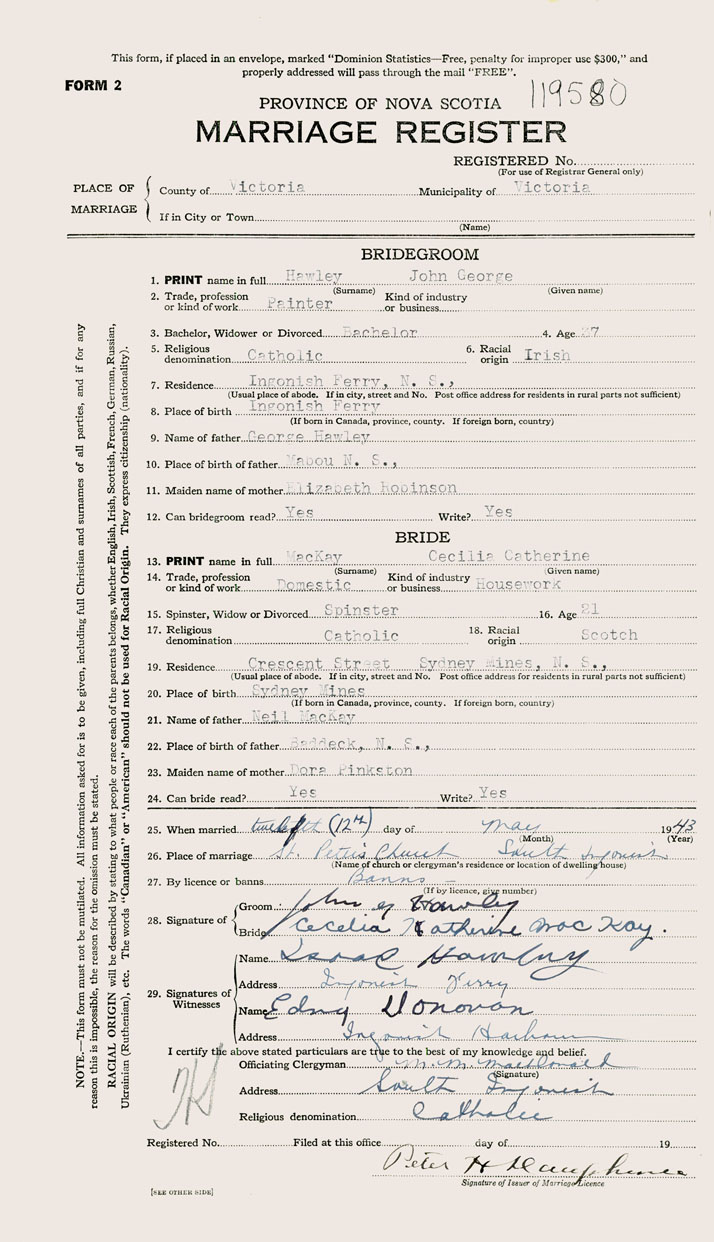 This form, if placed in an envelope, marked “Dominion Statistics—Free, penalty for improper use $300,” and
properly addressed will pass through the mail “FREE”.
FORM 2
119580
PROVINCE OF NOVA SCOTIA
MARRIAGE REGISTER
REGISTERED No.
(For use of Registrar General only)
PLACE OF MARRIAGE
County of Victoria Municipality of Victoria
If in City or Town
(Name)
BRIDEGROOM
1. PRINT name in full Hawley John George
(Surname) (Given name)
2. Trade, profession or kind of work Painter Kind of industry or business
3. Bachelor, Widower or Divorced Bachelor 4. Age 27
5. Religious denomination Catholic 6. Racial origin Irish
7. Residence Ingonish Ferry, N. S.,
(Usual place of abode. If in city, street and No. Post office address for residents in rural parts not sufficient)
8. Place of birth Ingonish Ferry
(If born in Canada, province, county. If foreign born, country)
9. Name of father George Hawley
10. Place of birth of father Mabou N. S.,
11. Maiden name of mother Elizabeth Robinson
12. Can bridegroom read? Yes Write? Yes
BRIDE
13. PRINT name in full MacKay Cecilia Catherine
(Surname) (Given name)
14. Trade, profession or kind of work Domestic Kind of industry or business Housework
15. Spinster, Widow or Divorced Spinster 16. Age 21
17. Religious denomination Catholic 18. Racial origin Scotch
19. Residence Crescent Street Sydney Mines, N. S.,
(Usual place of abode. If in city, street and No. Post office address for residents in rural parts not sufficient)
20. Place of birth Sydney Mines
(If born in Canada, province, county. If foreign born, country)
21. Name of father Neil MacKay
22. Place of birth of father Baddeck, N. S.,
23. Maiden name of mother Dora Pinkston
24. Can bride read? Yes Write? Yes
25. When married twelfth (12th) day of May 1943
(Month) (Year)
26. Place of marriage St. Peter's Church South Ingonish
(Name of church or clergyman's residence or location of dwelling house)
27. By licence or banns Banns
(If by licence, give number)
28. Signature of
Groom John G Hawley
Bride Cecelia Katherine Mac Kay.
29. Signatures of Witnesses
Name Isaac Hawley
Address Ingonish Ferry
Name Edna Donovan
Address Ingonish Harbour
I certify the above stated particulars are true to the best of my knowledge and belief.
Officiating Clergyman M. M. MacDonald
(Signature)
Address South Ingonish
Religious denomination Catholic
Registered No. Filed at this office day of 19
Peter H Dauphinee
Signature of Issuer of Marriage Licence
[SEE OTHER SIDE]
NOTE.—This form must not be mutilated. All information asked for is to be given, including full Christian and surnames of all parties, and if for any
reason this is impossible, the reason for the omission must be stated.
RACIAL ORIGIN will be described by stating to what people or race each of the parents belongs, whether English, Irish, Scottish, French, German, Russian,
Ukrainian (Ruthenian), etc. The words “Canadian” or “American” should not be used for Racial Origin. They express citizenship (nationality).